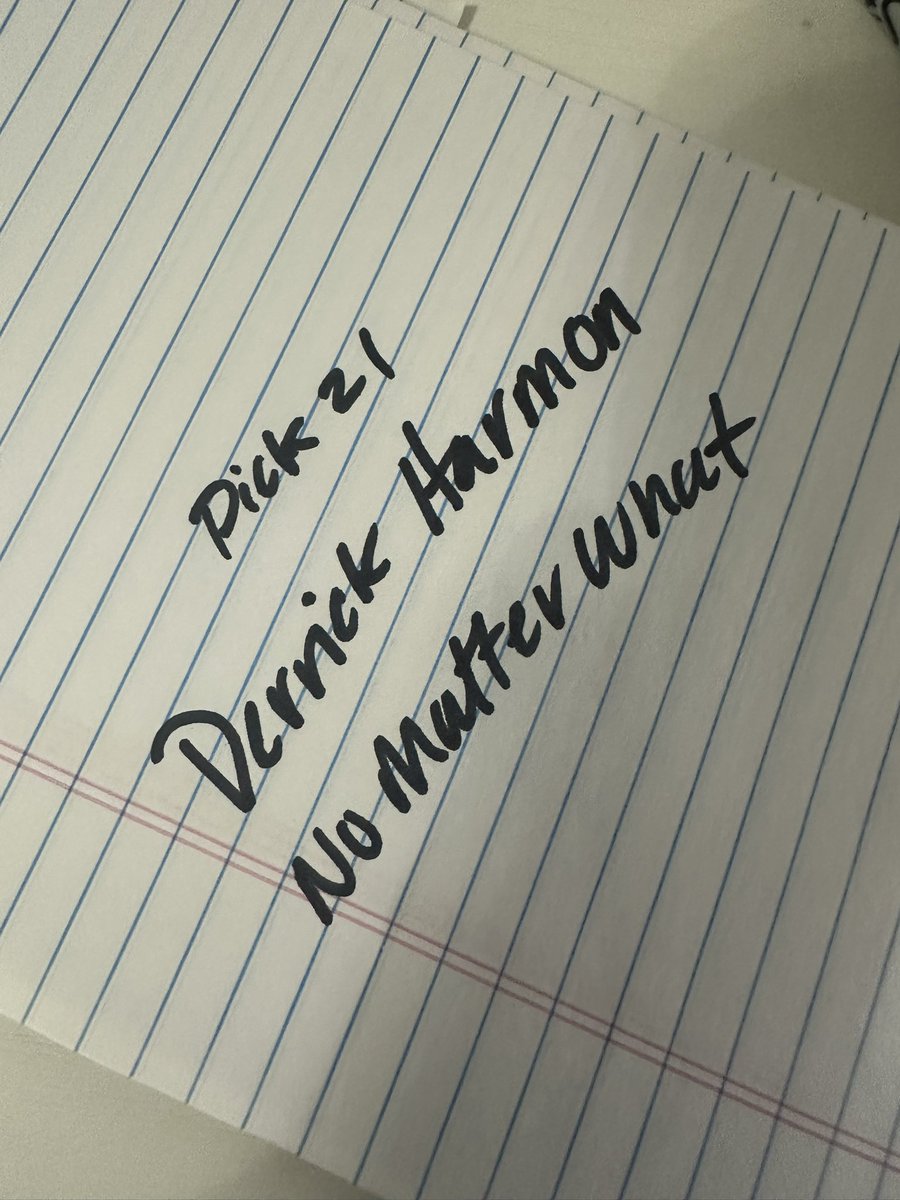 Pick 21
Derrick Harmon
No Matter What